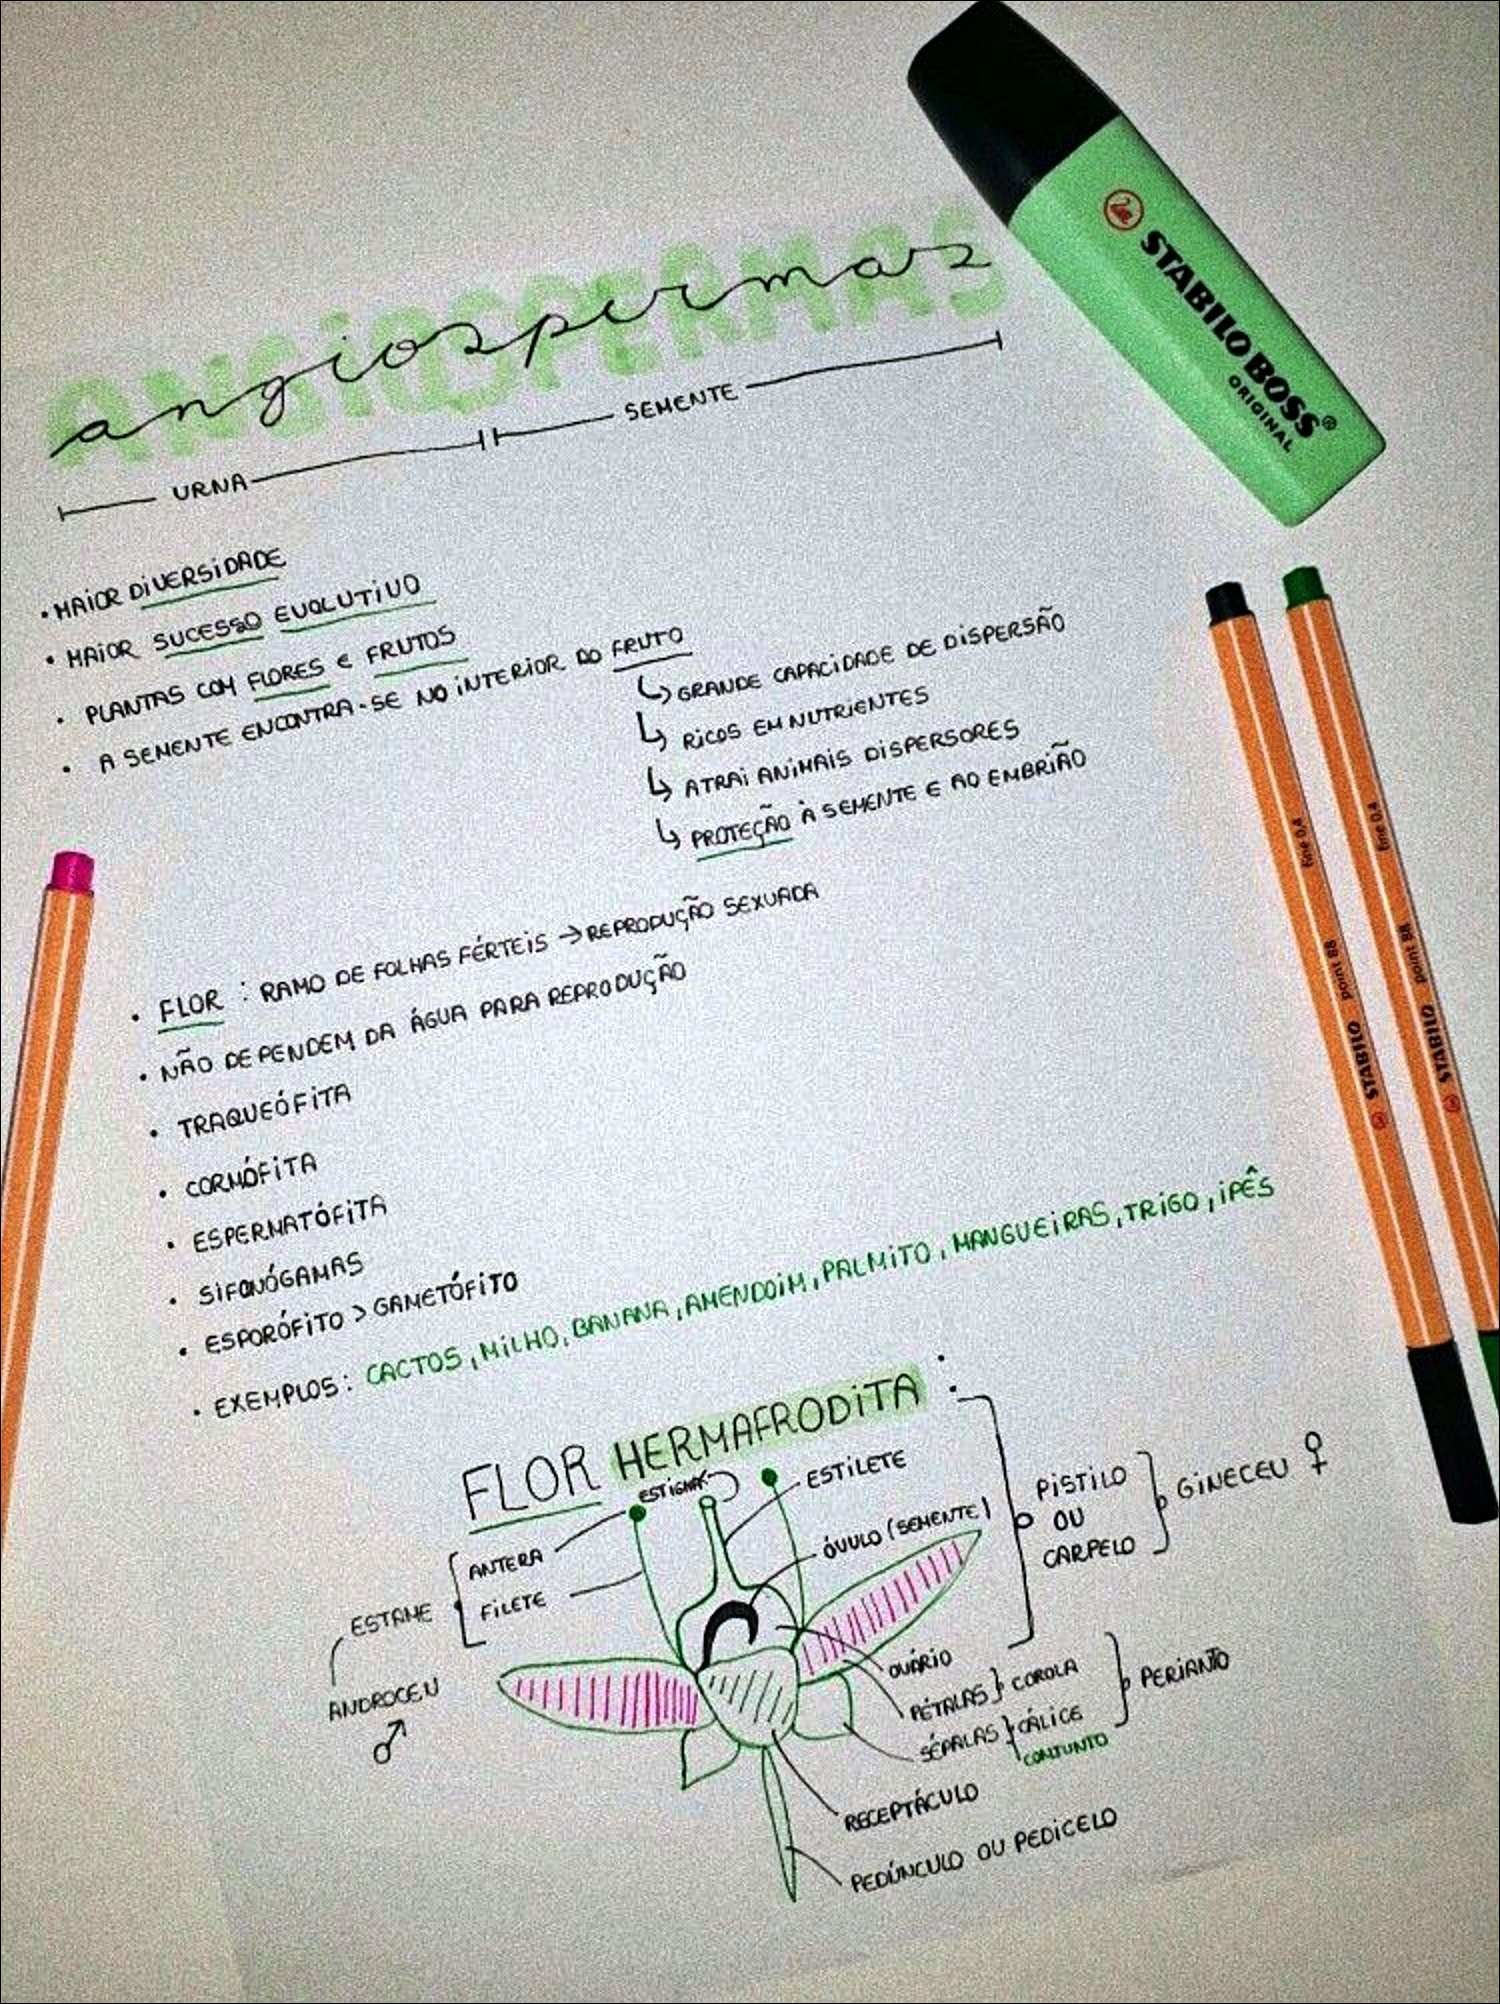 STABILO BOSS®
ORIGINAL
ANGIOSPERMAS
angiospermas
URNA
SEMENTE
• MAIOR DIVERSIDADE
• MAIOR SUCESSO EVOLUTIVO
• PLANTAS COM FLORES E FRUTOS
• A SEMENTE ENCONTRA-SE NO INTERIOR DO FRUTO
↳ GRANDE CAPACIDADE DE DISPERSÃO
↳ RICOS EM NUTRIENTES
↳ ATRAI ANIMAIS DISPERSORES
↳ PROTEÇÃO À SEMENTE E AO EMBRIÃO
• FLOR : RAMO DE FOLHAS FÉRTEIS → REPRODUÇÃO SEXUADA
• NÃO DEPENDEM DA ÁGUA PARA REPRODUÇÃO
• TRAQUEÓFITA
• CORMÓFITA
• ESPERMATÓFITA
• SIFONÓGAMAS
• ESPORÓFITO > GAMETÓFITO
• EXEMPLOS: CACTOS, MILHO, BANANA, AMENDOIM, PALMITO, MANGUEIRAS, TRIGO, IPÊS
FLOR HERMAFRODITA :
ESTIGMA
ESTILETE
ÓVULO (SEMENTE)
PISTILO
OU
CARPELO
GINECEU ♀
ANTERA
FILETE
ESTAME
ANDROCEU
♂
OVÁRIO
PÉTALAS } COROLA
SÉPALAS } CÁLICE
CONJUNTO
PERIANTO
RECEPTÁCULO
PEDÚNCULO OU PEDICELO
STABILO point 88 fine 0,4
STABILO point 88 fine 0,4